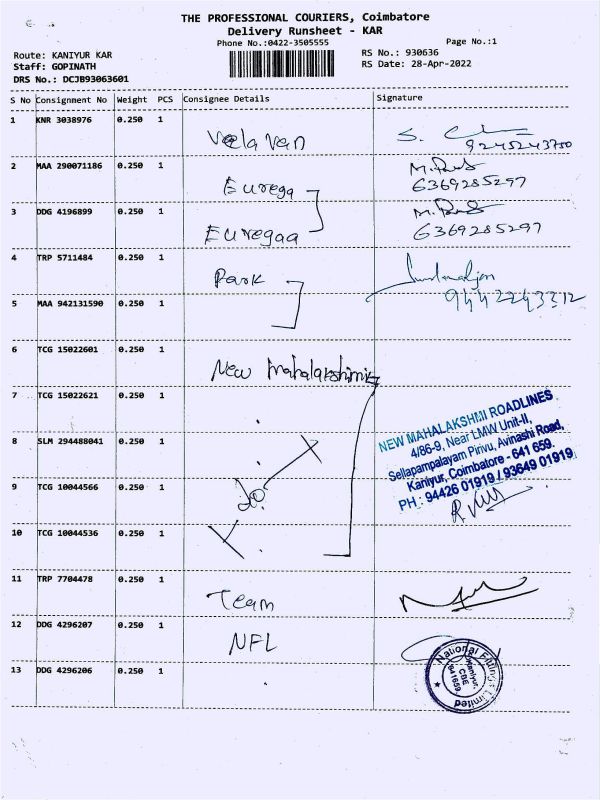 THE PROFESSIONAL COURIERS, Coimbatore
Delivery Runsheet - KAR
Phone No.:0422-3505555
Page No.:1
Route: KANIYUR KAR
Staff: GOPINATH
DRS No.: DCJB93063601
RS No.: 930636
RS Date: 28-Apr-2022
S No Consignment No Weight PCS Consignee Details Signature
1 KNR 3038976 0.250 1 Velavan
9245243750
2 MAA 290071186 0.250 1 Eurega
6369285297
3 DDG 4196899 0.250 1 Euregaa
6369285297
4 TRP 5711484 0.250 1 Park
9442243312
5 MAA 942131590 0.250 1
6 TCG 15022601 0.250 1 New Mahalakshmi
7 TCG 15022621 0.250 1
NEW MAHALAKSHMI ROADLINES
4/86-9, Near LMW Unit-II,
Sellapampalayam Pirivu, Avinashi Road,
Kaniyur, Coimbatore - 641 659.
PH : 94426 01919 / 93649 01919
8 SLM 294488041 0.250 1
9 TCG 10044566 0.250 1
10 TCG 10044536 0.250 1
11 TRP 7704478 0.250 1 Team
12 DDG 4296207 0.250 1 NFL
13 DDG 4296206 0.250 1
National Fittings Limited
Kaniyur,
CBE
641659.